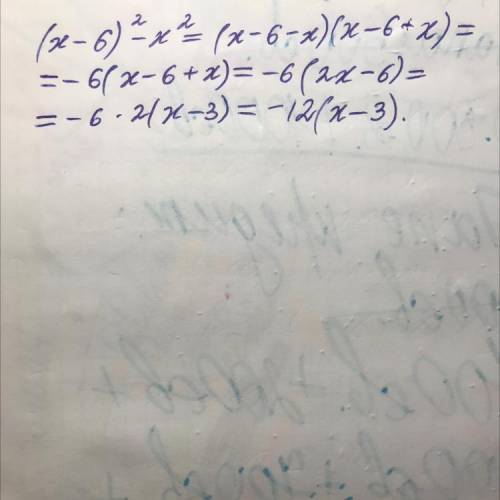 (x-6)²-x² = (x-6-x)(x-6+x)=
=-6(x-6+x)= -6(2x-6)=
= -6 · 2(x-3) = -12(x-3).